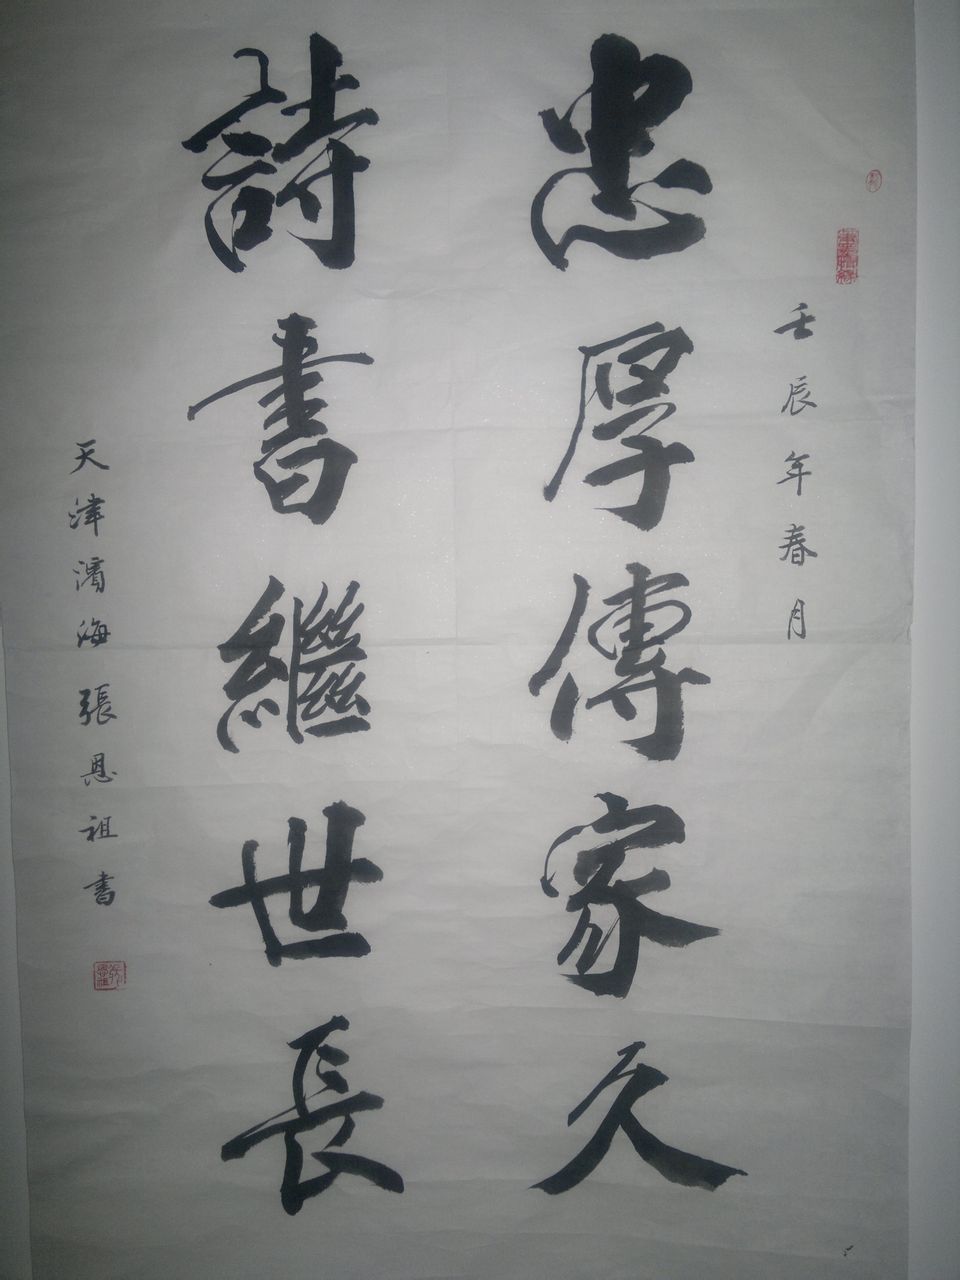 壬辰年春月
忠厚傳家久
詩書繼世長
天津濱海張恩祖書